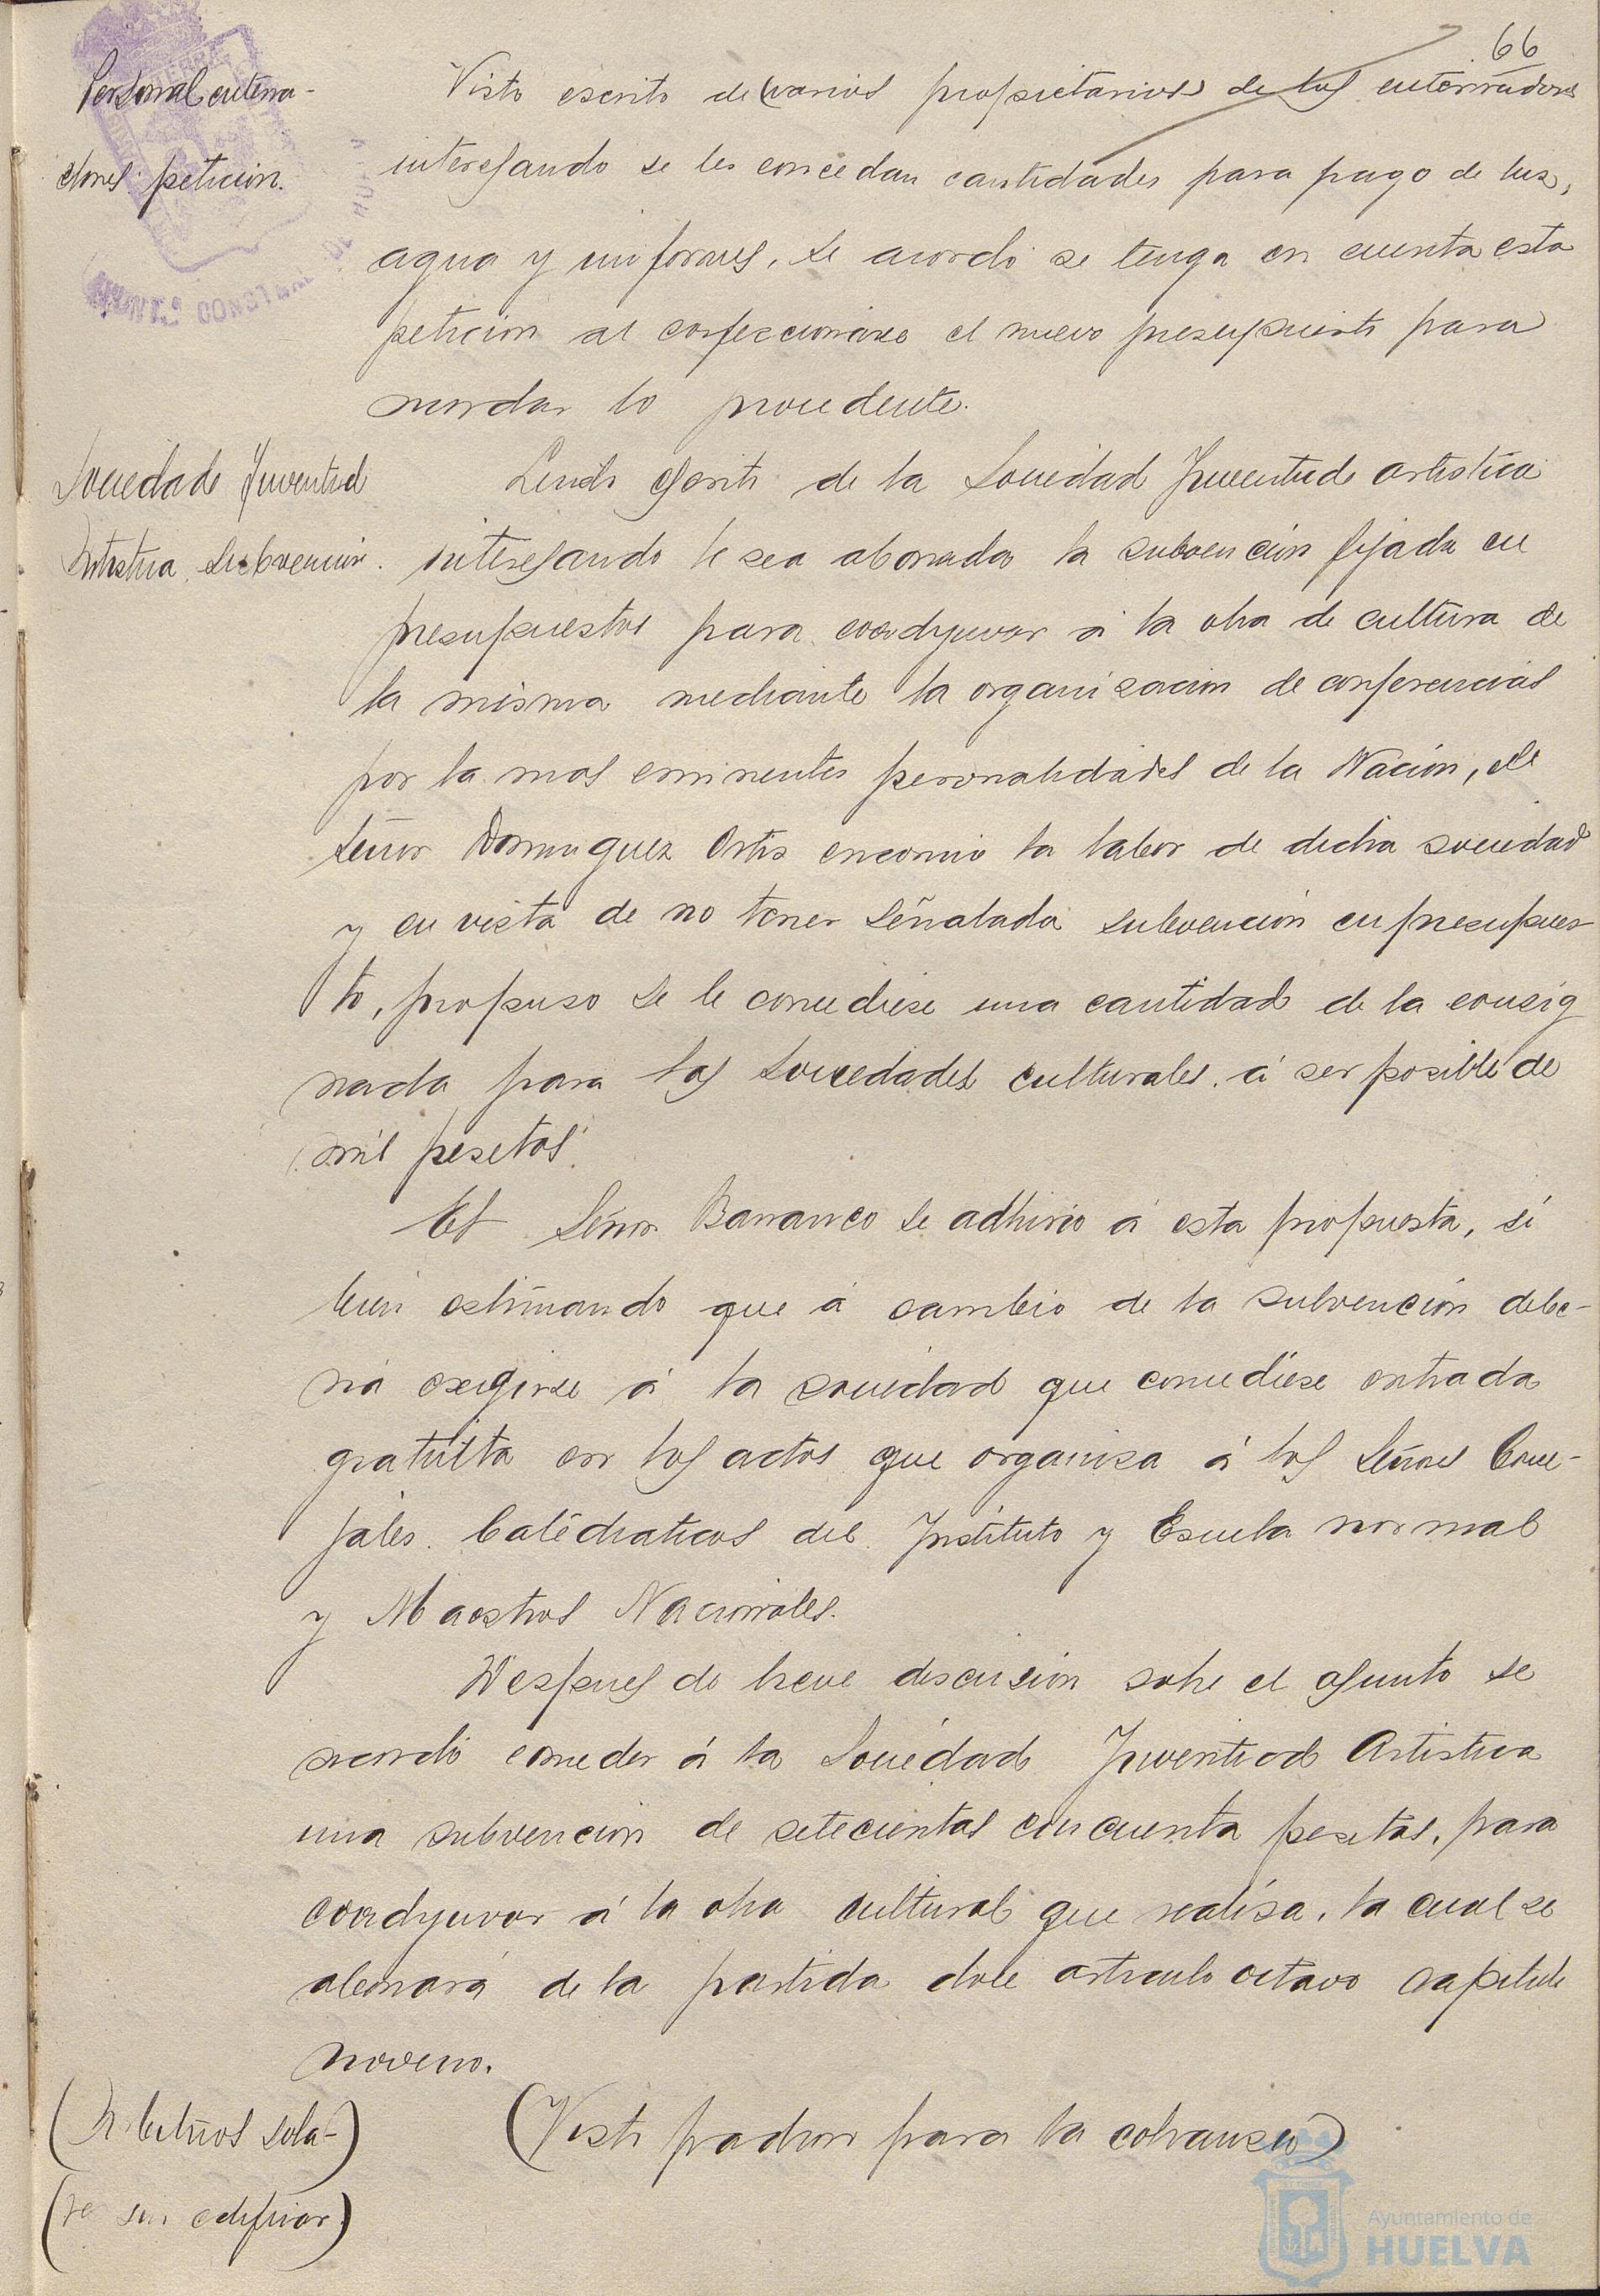 66
Personal enterra-
dores petición.
Visto escrito de varios propietarios de los enterradores
interesando se les concedan cantidades para pago de luz,
agua y uniformes, se acordó se tenga en cuenta esta
petición al confeccionarse el nuevo presupuesto para
acordar lo procedente.
Sociedad Juventud
Artistica, subvención.
Leido escrito de la Sociedad Juventud artística
interesando le sea abonada la subvención fijada en
presupuestos para coadyuvar á la obra de cultura de
la misma mediante la organización de conferencias
por la mas eminentes personalidades de la Nación, el
Señor Dominguez Ortiz encomió la labor de dicha sociedad
y en vista de no tener señalada subvención en presupues-
to, propuso se le concediese una cantidad de la consig
nada para las Sociedades culturales, á ser posible de
mil pesetas.
El Señor Barranco se adhirió á esta propuesta, si
bien estimando que á cambio de la subvención debe-
ria exigirse á la sociedad que concediese entrada
gratuita en los actos que organiza á los Señores Conce-
jales, Catédraticos del Instituto y Escuela normal
y Maestros Nacionales.
Despues de breve discusión sobre el asunto se
acordó conceder á la Sociedad Juventud Artistica
una subvención de setecientas cincuenta pesetas, para
coadyuvar á la obra cultural que realiza, la cual se
abonará de la partida doce artículo octavo capitulo
noveno.
(Arbitrios sola-)
(res sin edificar)
(Visto padron para la cobranza)
Ayuntamiento de
HUELVA